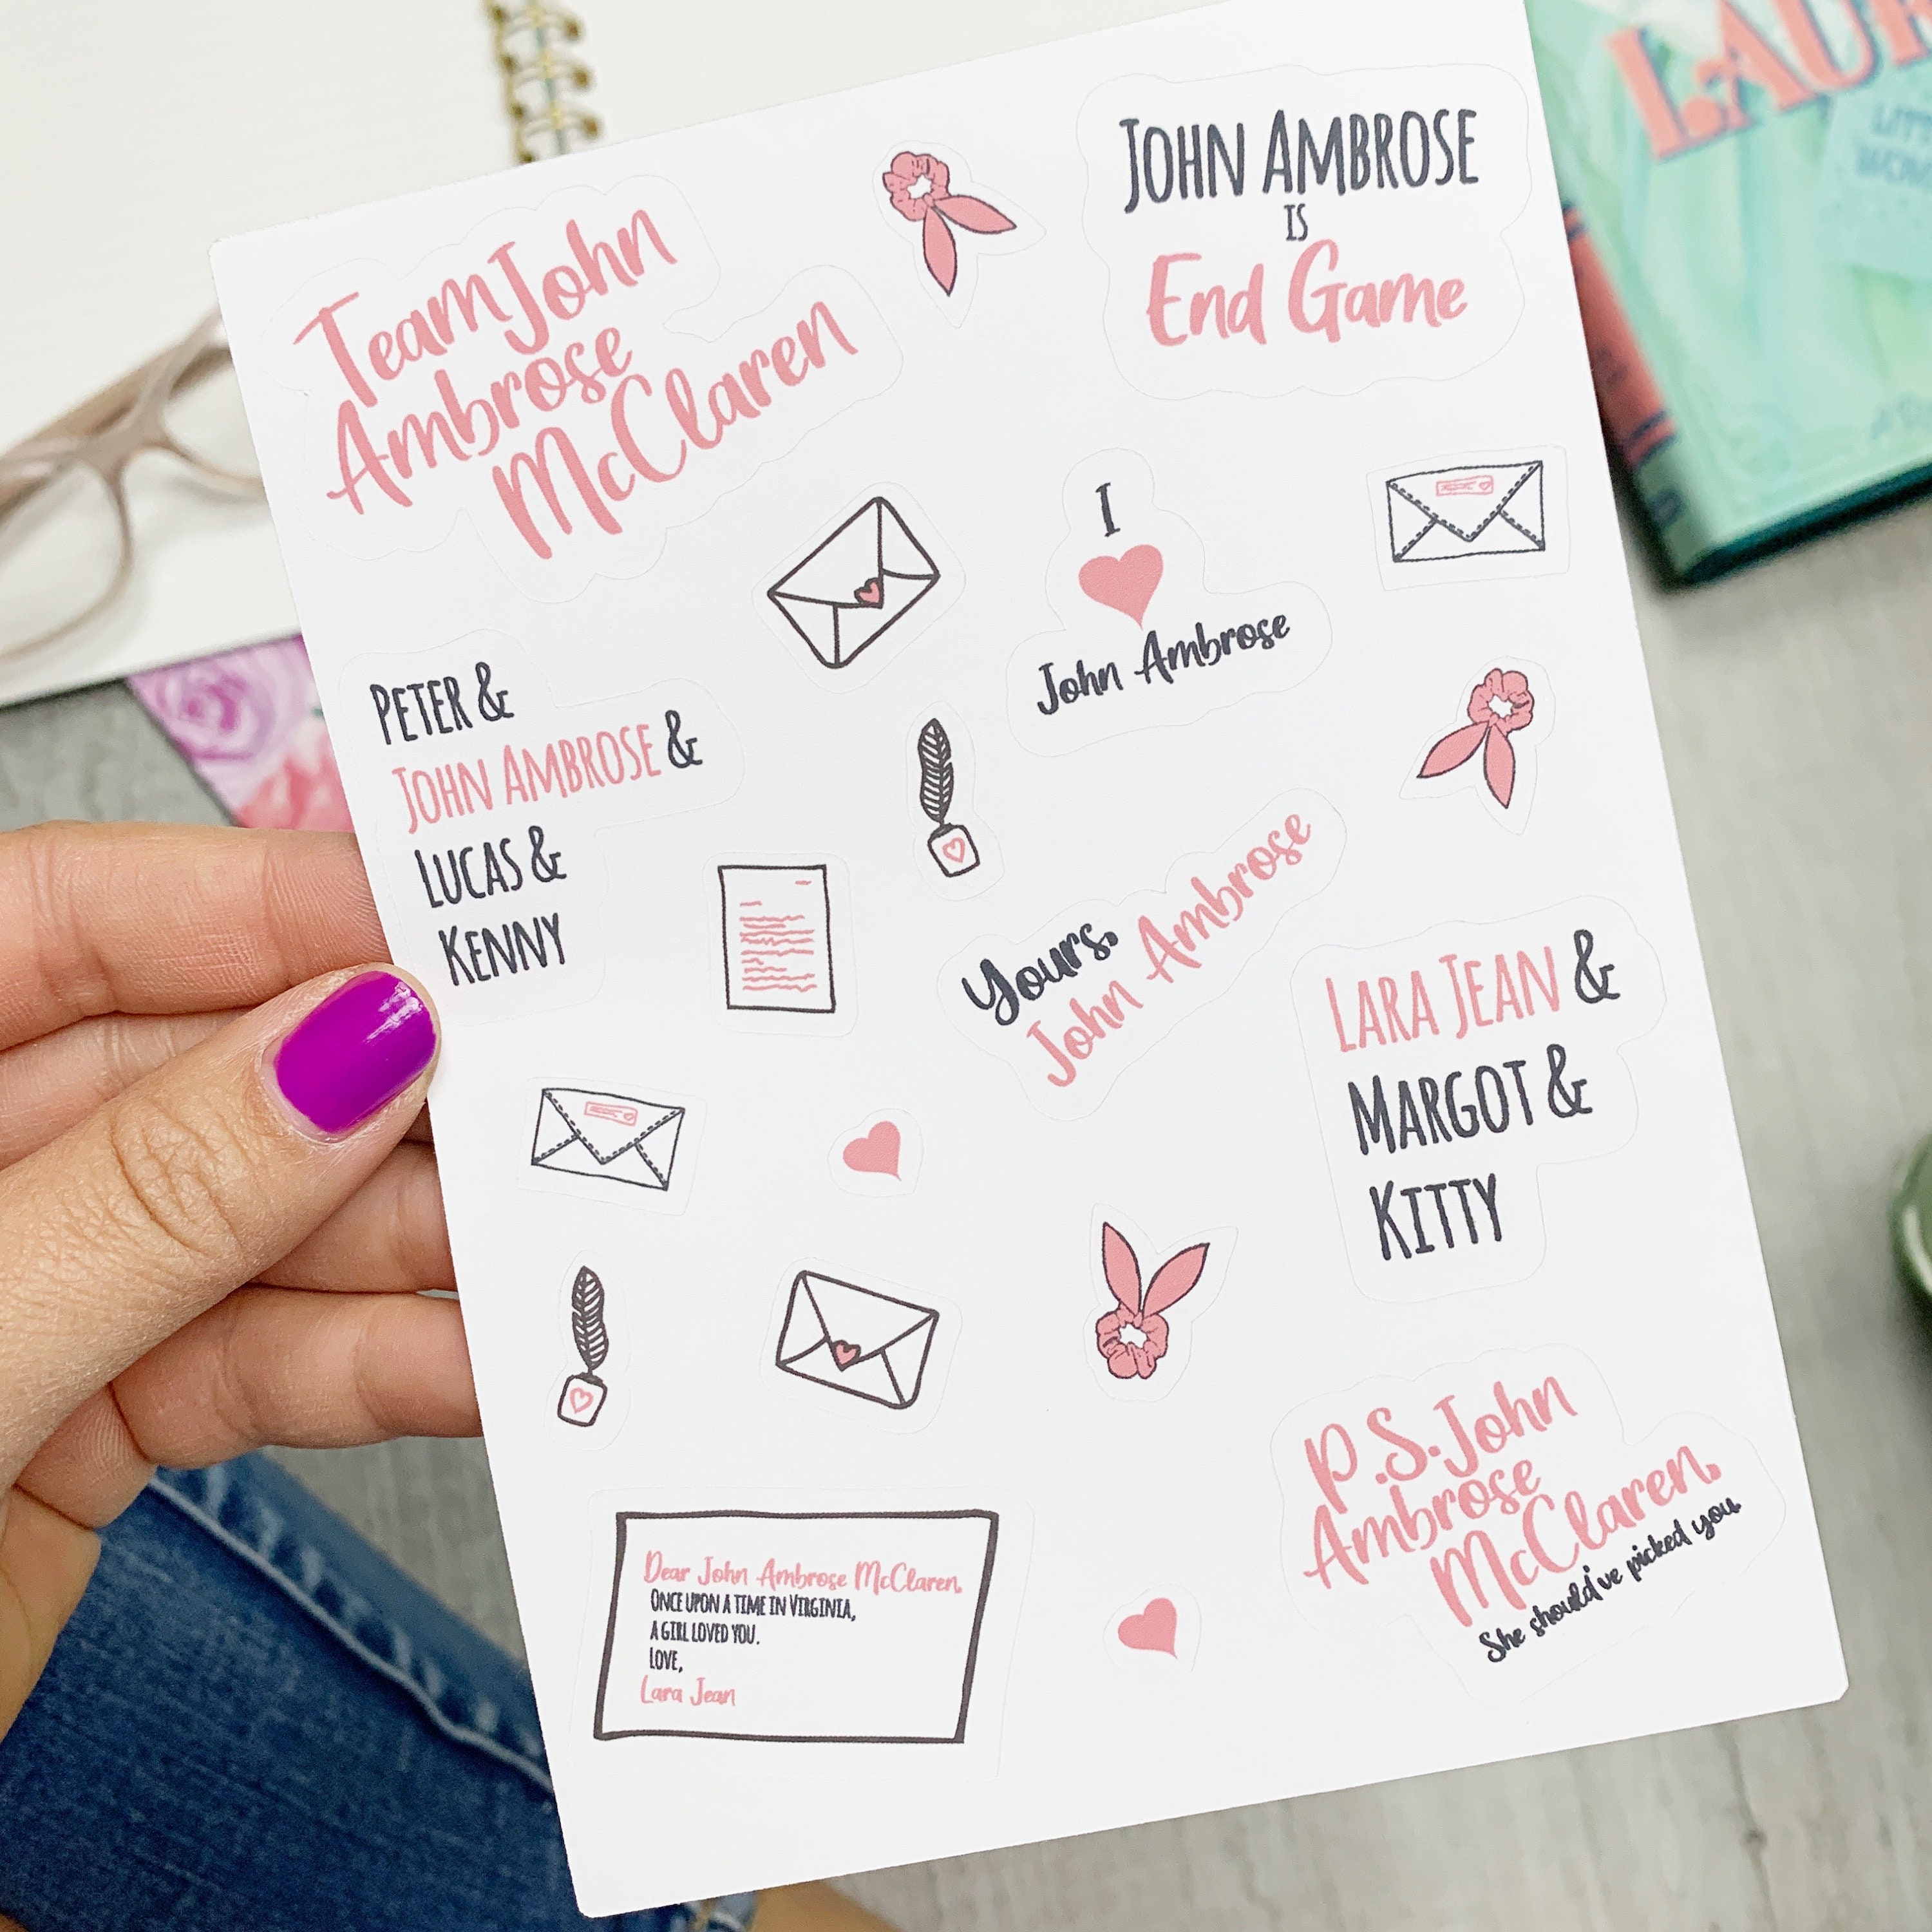 Team John
Ambrose
McClaren
John Ambrose
is
End Game
I
John Ambrose
Peter &
John Ambrose &
Lucas &
Kenny
Yours,
John Ambrose
Lara Jean &
Margot &
Kitty
Dear John Ambrose McClaren,
Once upon a time in Virginia,
a girl loved you.
Love,
Lara Jean
P.S. John
Ambrose
McClaren,
She should've picked you